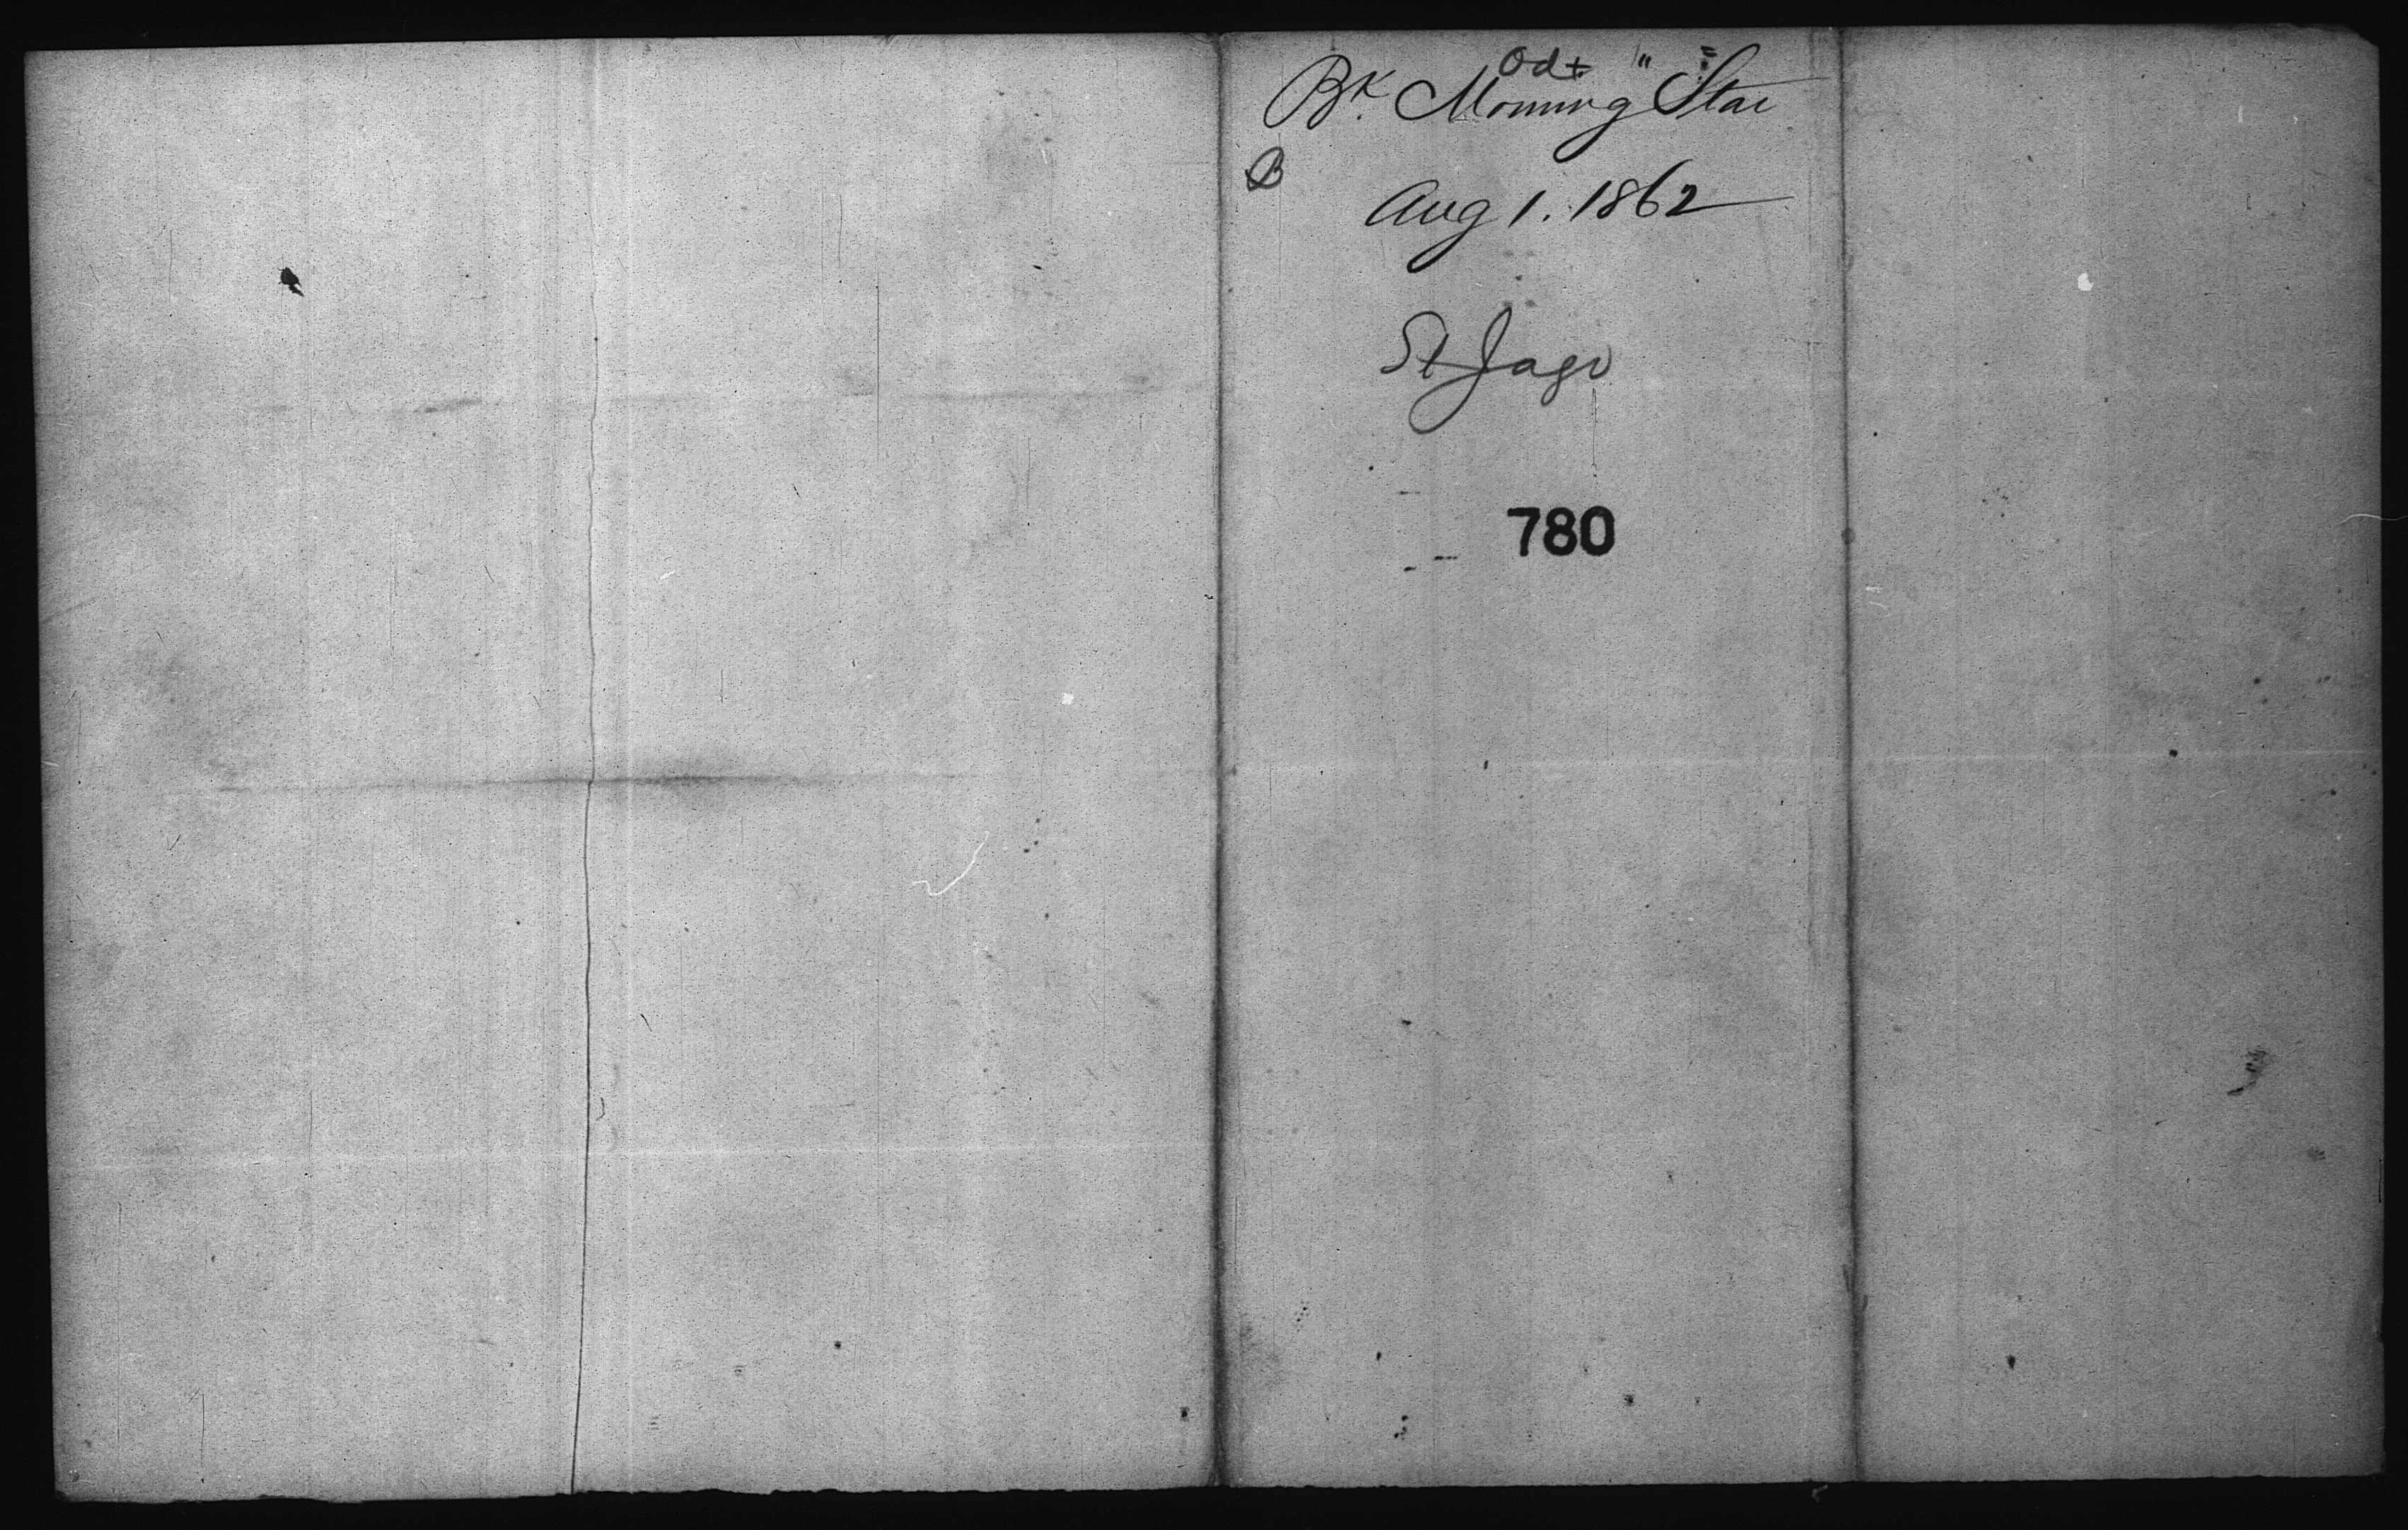 Od+ "
Bk. Morning Star
B
Aug 1. 1862
St Jago
780